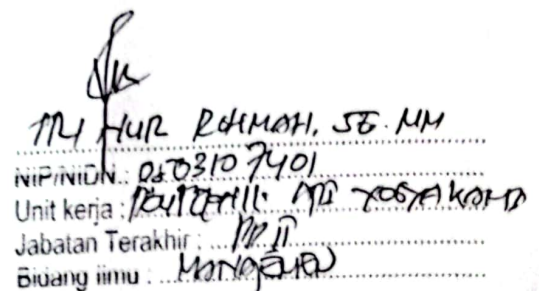 TRI NUR ROHMAH, SE. MM
NIP/NIDN.: 0503107401
Unit kerja : YOGYAKARTA
Jabatan Terakhir :
Bidang ilmu : MANAJEMEN